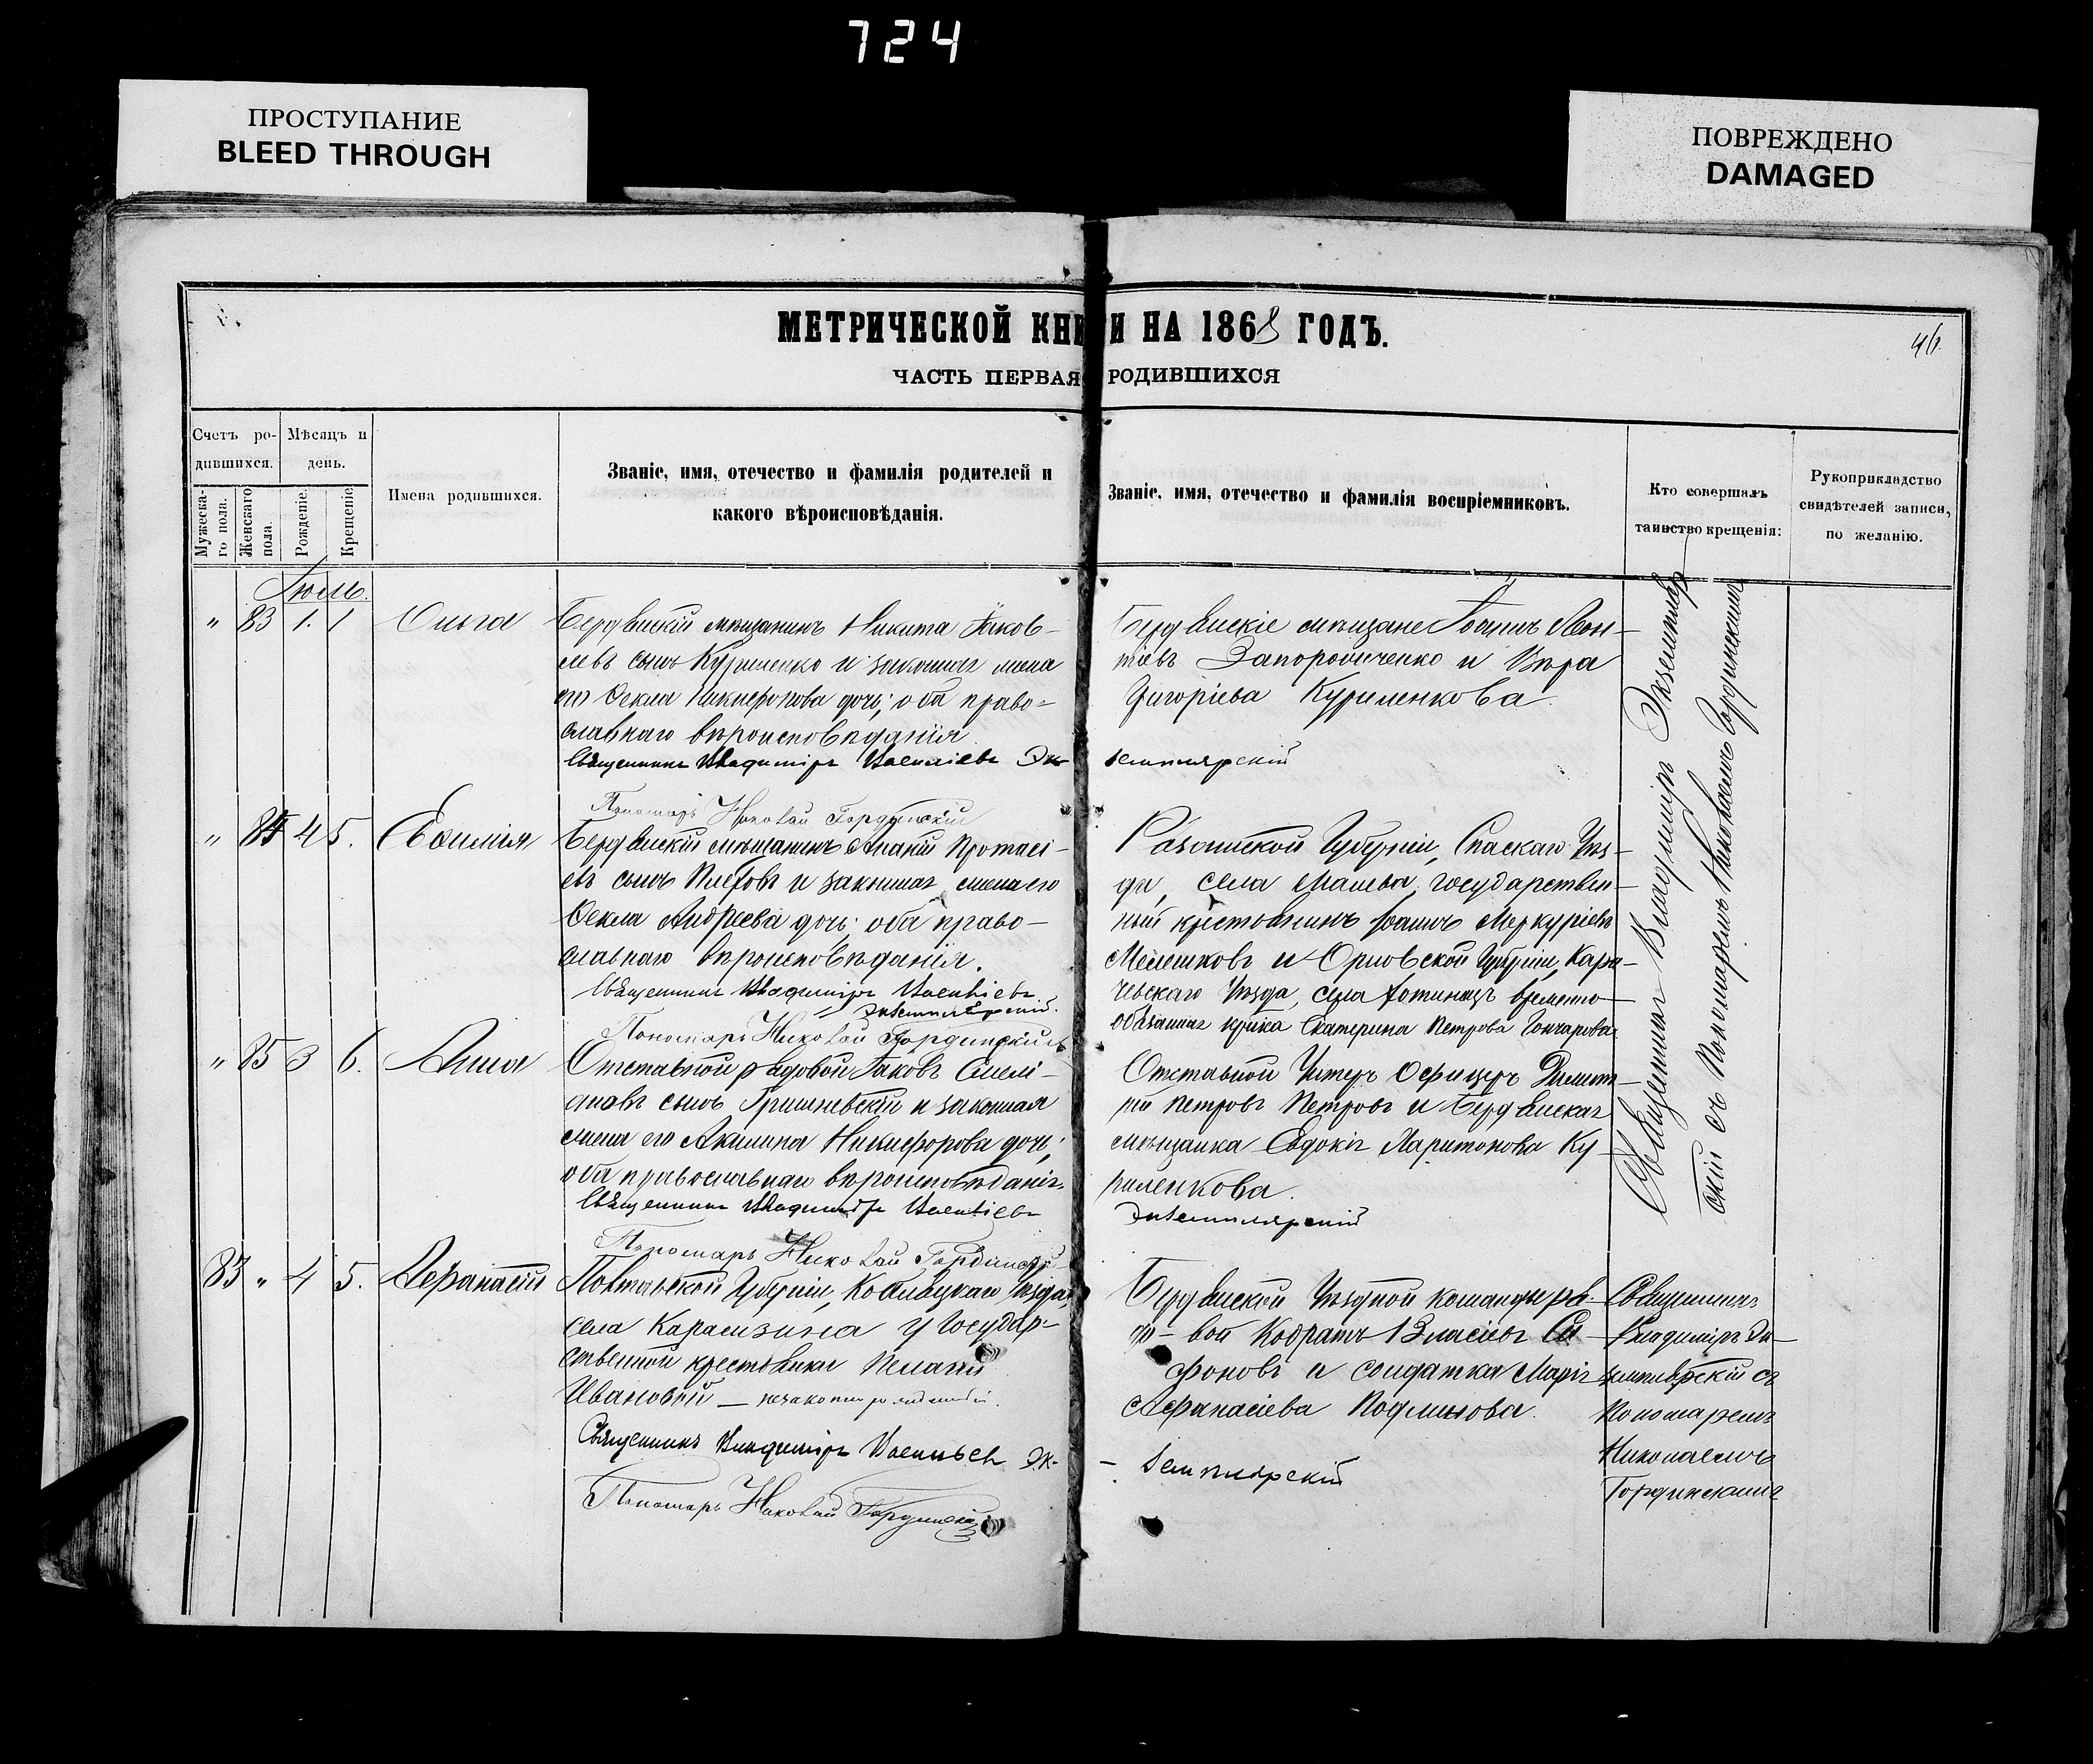 724
ПРОСТУПАНИЕ
BLEED THROUGH
ПОВРЕЖДЕНО
DAMAGED
МЕТРИЧЕСКОЙ КНИ И НА 1868 ГОДЪ.
46.
ЧАСТЬ ПЕРВАЯ РОДИВШИХСЯ
Счетъ ро-
дившихся.
Мѣсяцъ и
день.
Мужеска-
го пола.
Женскаго
пола.
Рожденіе.
Крещеніе.
Имена родившихся.
Званіе, имя, отечество и фамилія родителей и
какого вѣроисповѣданія.
Званіе, имя, отечество и фамилія воспріемниковъ.
Кто совершалъ
таинство крещенія:
Рукоприкладство
свидѣтелей записи,
по желанію.
Іюль.
" 83 1. 1 Ольга
Бердянскій мѣщанинъ Никита Яков-
левъ сынъ Куриленко и законная жена
его Ѳекла Никифорова дочь; оба право-
славнаго вѣроисповѣданія
Священникъ Владиміръ Васильевъ Эк-
Пономарь Николай Гординскій
Бердянскіе мѣщане Іоаннъ Леон-
тіевъ Запорожченко и Вѣра
Григоріева Куриленкова.
земплярскій
" 84 4 5.
Бердянскій мѣщанинъ Протасі-
евъ сынъ и законная жена его
Ѳекла Андреева дочь; оба право-
славнаго вѣроисповѣданія.
Священникъ Владиміръ Васильевъ
Экземплярскій.
Пономарь Николай Гординскій
Рязанской Губерніи, Спаскаго Уѣз-
да, села государствен-
ный крестьянинъ Іоаннъ Меркуріевъ
Мелешковъ и Орловской Губерніи, Кара-
чевскаго Уѣзда, села временно-
обязанная Екатерина Петрова Гончарова
" 85 3 6. Анна
Отставной рядовой Іаковъ Емелі-
ановъ сынъ Гришневскій и законная
жена его Акилина Никифорова дочь;
оба православнаго вѣроисповѣданія.
Священникъ Владиміръ Васильевъ
Пономарь Николай Гординскій
Отставной Унтеръ Офицеръ Димит-
рій Петровъ Петровъ и Бердянская
мѣщанка Евдокія Харитонова Ку-
риленкова.
Экземплярскій
83 " 4 5. Аѳанасій
Полтавской Губерніи, Кобеляцкаго Уѣзда,
села у Государ-
ственной крестьянки Пелагіи
Ивановой — незаконнорожденный.
Священникъ Владиміръ Васильевъ Эк-
Пономарь Николай Гординскій
Бердянской Уѣздной команды ря-
до-вой Кодратъ Власіевъ Са-
фоновъ и солдатка Марія
Аѳанасіева
- земплярскій
Священникъ Владиміръ Экземпляр
скій съ Пономаремъ Николаемъ Гординскимъ
Священникъ
Владиміръ Эк-
земплярскій съ
Пономаремъ
Николаемъ
Гординскимъ